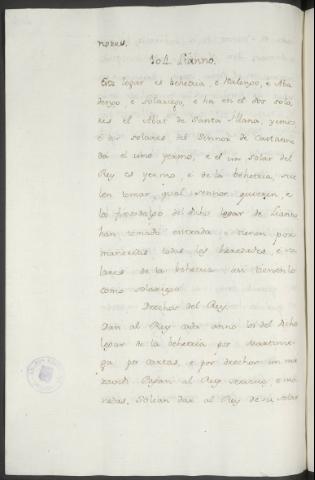 noxas.
Lianno.
Este logar es behetria, é Realengo, é Aba
dengo, é solariego, é ha en el dos sola
res el Abat de Santa Illana, yermos
é dos solares del Sennor de Castanne
da el uno yermo, é el un solar del
Rey es yermo, é de la behetria, sue
len tomar qual sennor quieren, é
los fijosdalgo del dicho logar de Lianno
han tomado entrada é tienen por
mannerias todos los heredades, é so
lares de la behetria así tienenlo
como solariego
Drechos del Rey.
Dan al Rey cada anno los del dicho
logar de la behetria por Martinie
ga por cartas, é por drechor un ma
ravedi. Pagan al Rey servicio, é mo
nedas. Solian dar al Rey de su solar